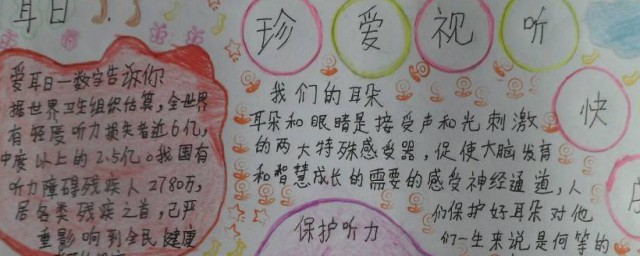 耳日
珍爱视听
爱耳日一数字告诉你
据世界卫生组织估算,全世界
有轻度听力损失者近6亿,
中度以上的2.5亿。我国有
听力障碍残疾人2780万,
居各类残疾之首,已严
重影响到全民健康
我们的耳朵
耳朵和眼睛是接受声和光刺激
的两大特殊感受器,促使大脑发育
和智慧成长的需要的感受神经通道,人
们保护好耳朵对他
们一生来说是何等的
保护听力
快